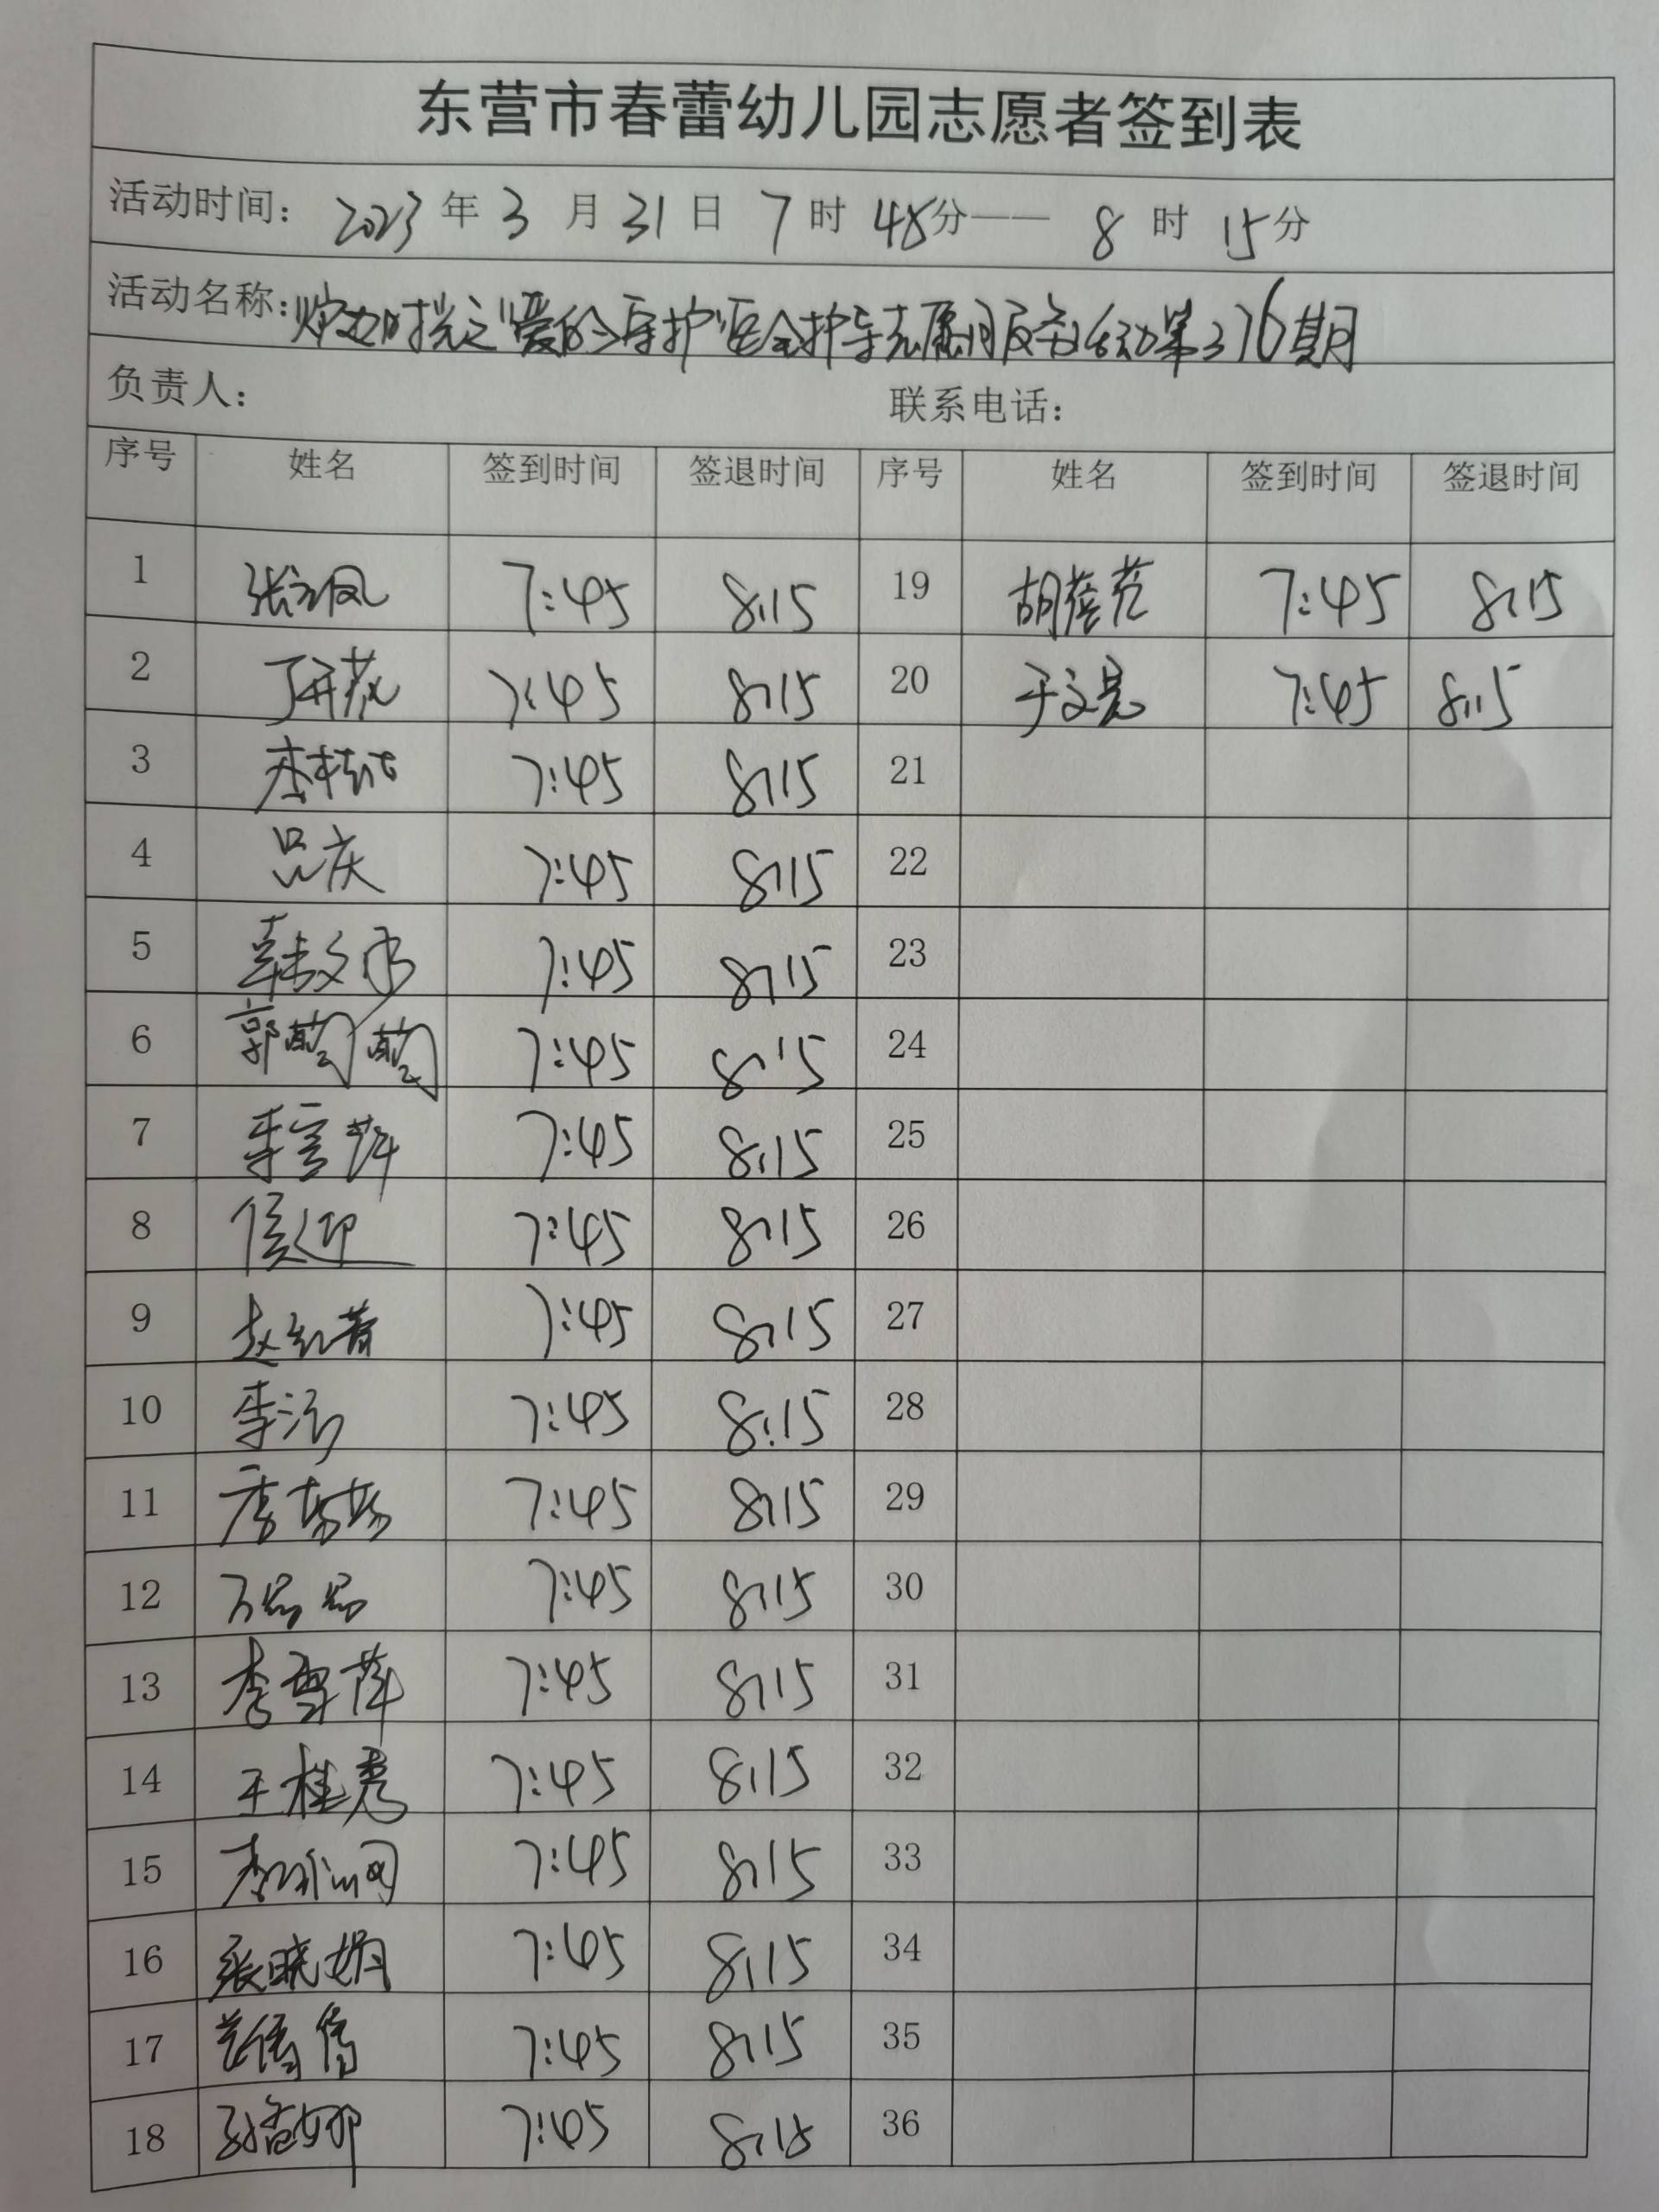 东营市春蕾幼儿园志愿者签到表
活动时间: 2023 年 3 月 31 日 7 时 45 分—— 8 时 15 分
活动名称: 时光之"爱的 护"安全护导志愿服务活动第376期
负责人: 联系电话:
序号 姓名 签到时间 签退时间 序号 姓名 签到时间 签退时间
1 7:45 8:15 19 胡蓓蓓 7:45 8:15
2 7:45 8:15 20 于文亮 7:45 8:15
3 李 7:45 8:15 21
4 吕庆 7:45 8:15 22
5 韩文 7:45 8:15 23
6 郭 7:45 8:15 24
7 李 萍 7:45 8:15 25
8 侯迎 7:45 8:15 26
9 赵红 7:45 8:15 27
10 李 7:45 8:15 28
11 李 7:45 8:15 29
12 7:45 8:15 30
13 李雪萍 7:45 8:15 31
14 王桂秀 7:45 8:15 32
15 李 7:45 8:15 33
16 张晓娟 7:45 8:15 34
17 7:45 8:15 35
18 娜 7:45 8:15 36